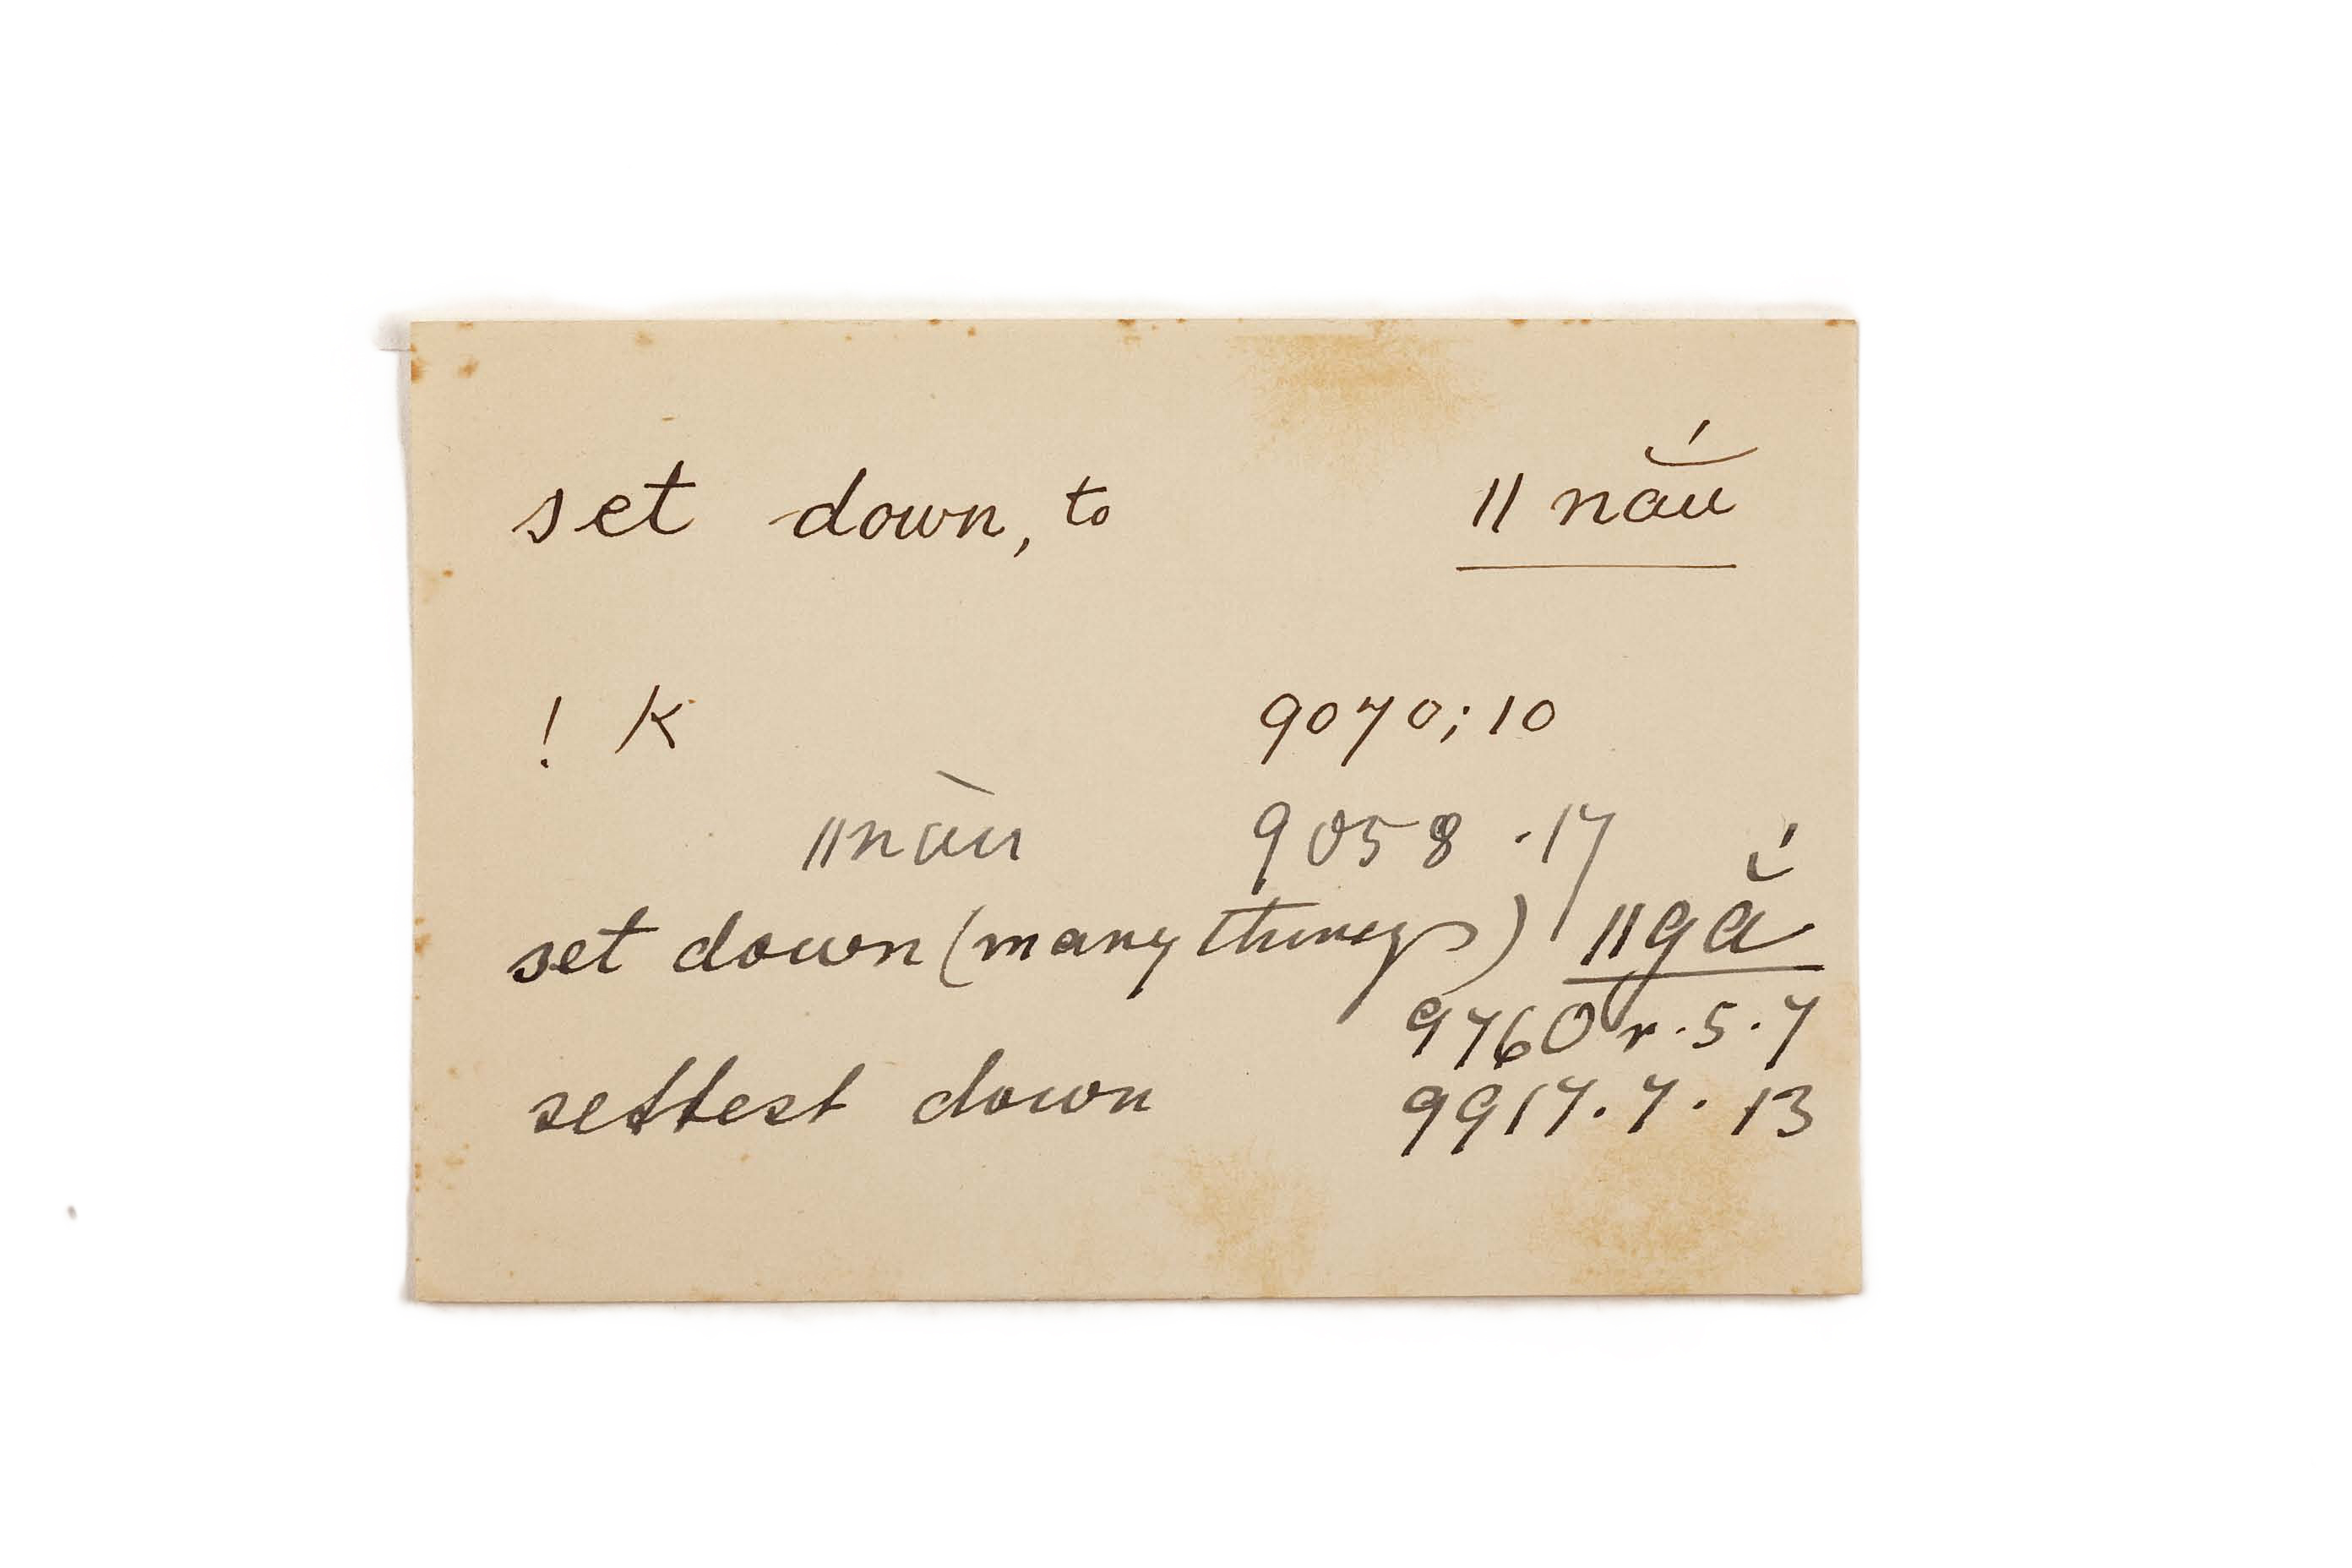 set down, to ǁnắu
! K 9070; 10
ǁnàu 9058 . 17
set down (many things) ǁgắ
9760 r. 5. 7
settest down 9917. 7. 13